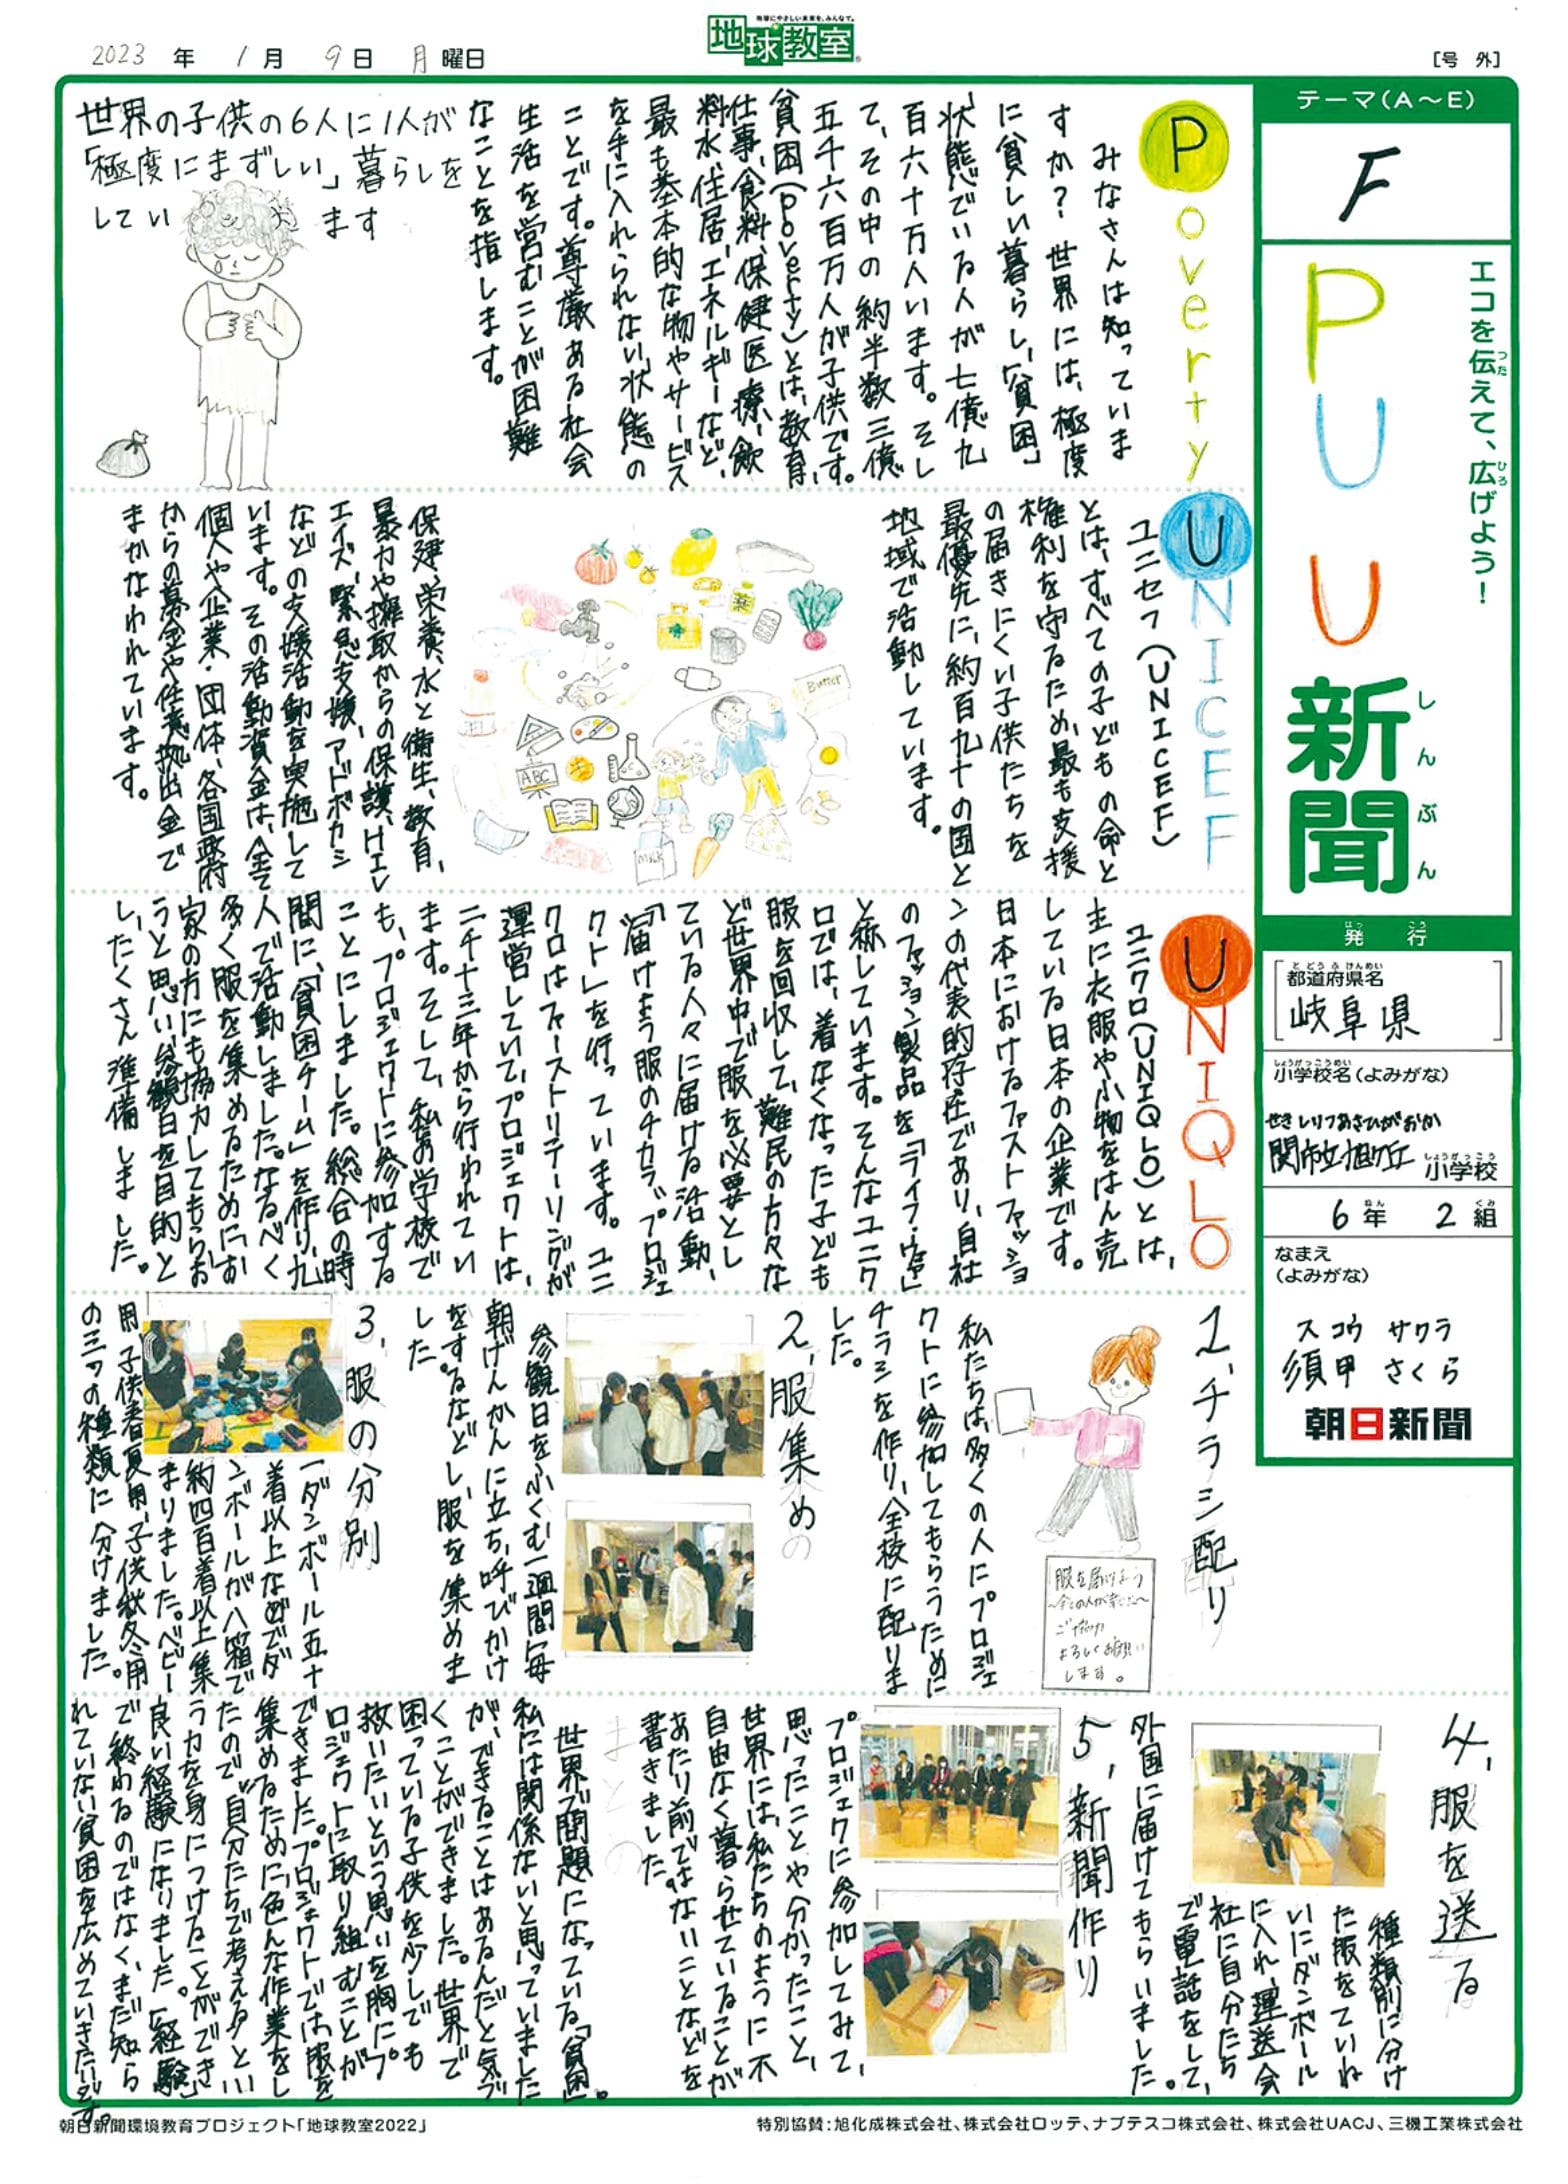 地球にやさしい未来を、みんなで。
地球教室
2023年1月9日月曜日
[号外]
テーマ(A〜E)
F
エコを伝えて、広げよう!
つた
ひろ
PUU
新聞
しんぶん
発行
はっこう
都道府県名
とどうふけんめい
岐阜県
小学校名(よみがな)
しょうがっこうめい
せきしりつあさひがおか
関市立旭ヶ丘小学校
しょうがっこう
6年2組
ねん
くみ
なまえ
(よみがな)
スコウ サクラ
須甲 さくら
朝日新聞
Poverty
みなさんは知っていま
すか?世界には、極度
に貧しい暮らし、「貧困」
状態でいる人が七億九
百六十万人います。そし
て、その中の約半数三億
五千六百万人が子供です。
貧困(poverty)とは、教育、
仕事、食料、保健医療、飲
料水、住居、エネルギーなど、
最も基本的な物やサービス
を手に入れられない状態の
ことです。尊厳ある社会
生活を営むことが困難
なことを指します。
世界の子供の6人に1人が
「極度にまずしい」暮らしを
しています
UNICEF
ユニセフ(UNICEF)
とは、すべての子どもの命と
権利を守るため、最も支援
の届きにくい子供たちを
最優先に、約百九十の国と
地域で活動しています。
Butter
ABC
MILK
薬
保健、栄養、水と衛生、教育、
暴力や搾取からの保護、HIV
エイズ、緊急支援、アドボカシー
などの支援活動を実施して
います。その活動資金は、全て
個人や企業・団体、各国政府
からの募金や任意拠出金で
まかなわれています。
UNIQLO
ユニクロ(UNIQLO)とは、
主に衣服や小物をはん売
している日本の企業です。
日本におけるファストファッショ
ンの代表的存在であり、自社
のファッション製品を「ライフ・ウェア」
と称しています。そんなユニク
ロでは、着なくなった子ども
服を回収して、難民の方々な
ど世界中で服を必要とし
ている人々に届ける活動、
「〝届けよう服のチカラ〟プロジェ
クト」を行っています。ユニ
クロはファーストリテーリングが
運営していて、プロジェクトは、
二千十三年から行われてい
ます。そして、私の学校で
も、プロジェクトに参加する
ことにしました。総合の時
間に、「貧困チーム」を作り、九
人で活動しました。なるべく
多く服を集めるために、「お
家の方にも協力してもらお
う」と思い、参観日を目的と
し、たくさん準備しました。
1、チラシ配り
服を届けよう
よろしくお願い
します。
私たちは、多くの人にプロジェ
クトに参加してもらうために
チラシを作り、全校に配りま
した。
2、服集めの
参観日をふくむ一週間、毎
朝げんかんに立ち、呼びかけ
をするなどし、服を集めま
した。
3、服の分別
一ダンボール五十
着以上なので、ダ
ンボールが八箱で
約四百着以上集
まりました。ベビー
用、子供春夏用、子供秋冬用
の三つの種類に分けました。
4、服を送る
種類別に分け
た服をていね
いにダンボール
に入れ、運送会
社に自分たち
で電話をして、
外国に届けてもらいました。
5、新聞作り
プロジェクトに参加してみて、
思ったことや分かったこと、
世界には、私たちのように不
自由なく暮らせていることが
あたり前ではないことなどを
書きました。
まとめ
世界で問題になっている「貧困」。
私には関係ないと思っていました
が、できることはあるんだと気づ
くことができました。世界で
困っている子供を少しでも
救いたいという思いを胸にプ
ロジェクトに取り組むことが
できました。プロジェクトでは、服を
集めるために、色んな作業をし
たので〝自分たちで考える〟とい
う力を身につけることができ、
良い経験になりました。「経験」
で終わるのではなく、まだ知ら
れていない貧困を広めていきたいです。
朝日新聞環境教育プロジェクト「地球教室2022」
特別協賛:旭化成株式会社、株式会社ロッテ、ナブテスコ株式会社、株式会社UACJ、三機工業株式会社